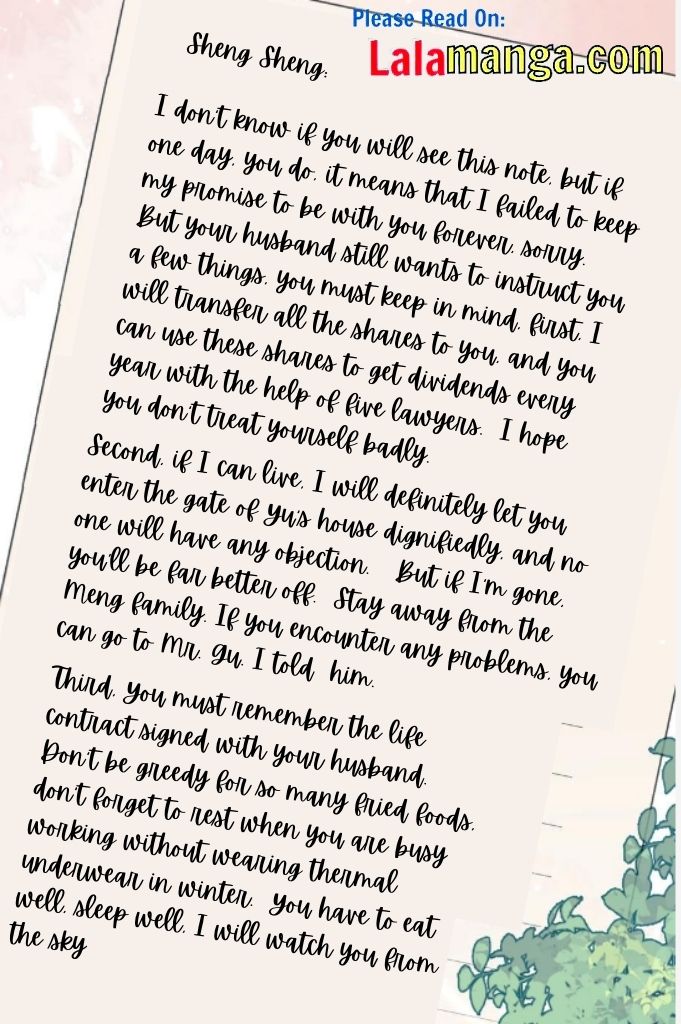 Please Read On:
Lalamanga.com
Sheng Sheng:
I don't know if you will see this note, but if
one day, you do, it means that I failed to keep
my promise to be with you forever, sorry.
But your husband still wants to instruct you
a few things, you must keep in mind, first, I
will transfer all the shares to you, and you
can use these shares to get dividends every
year with the help of five lawyers. I hope
you don't treat yourself badly.
Second, if I can live, I will definitely let you
enter the gate of Yu's house dignifiedly, and no
one will have any objection. But if I'm gone,
you'll be far better off. Stay away from the
Meng family. If you encounter any problems, you
can go to Mr. Gu, I told him.
Third, you must remember the life
contract signed with your husband.
Don't be greedy for so many fried foods,
don't forget to rest when you are busy
working without wearing thermal
underwear in winter. You have to eat
well, sleep well, I will watch you from
the sky